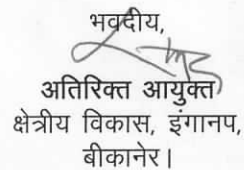 भवदीय,
अतिरिक्त आयुक्त
क्षेत्रीय विकास, इंगानप,
बीकानेर।